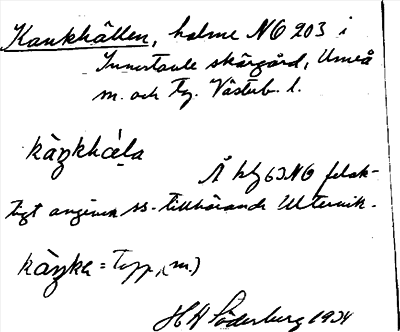 Kankhällen, holme NO 203 i
Innertavle skärgård, Umeå
m. och tg. Västerb. l.
kàŋkhàla
Å hfg 63 NO felak-
tigt angiven ss. tillhörande Ultervik.
kàŋka = Topp, (m.)
HA Söderberg 1934